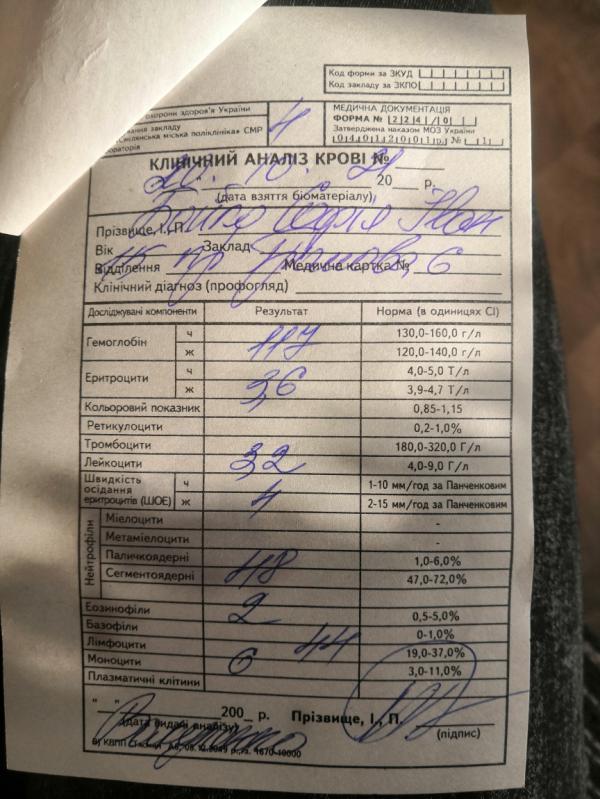 Код форми за ЗКУД
Код закладу за ЗКПО
охорони здоров'я України
вання закладу
міська поліклініка» СМР
4
МЕДИЧНА ДОКУМЕНТАЦІЯ
ФОРМА № 224/0
Затверджена наказом МОЗ України
04012001р. № 1
КЛІНІЧНИЙ АНАЛІЗ КРОВІ №
10. 21 20 р.
(дата взяття біоматеріалу)
Прізвище, І., П.
Вік Заклад
Відділення Медична картка № 6
Клінічний діагноз (профогляд)
Досліджувані компоненти Результат Норма (в одиницях СІ)
Гемоглобін ч 130,0-160,0 г/л
ж 117 120,0-140,0 г/л
Еритроцити ч 4,0-5,0 Т/л
ж 3,6 3,9-4,7 Т/л
Кольоровий показник 0,85-1,15
Ретикулоцити 0,2-1,0%
Тромбоцити 180,0-320,0 Г/л
Лейкоцити 3,2 4,0-9,0 Г/л
Швидкість осідання еритроцитів (ШОЕ) ч 1-10 мм/год за Панченковим
ж 4 2-15 мм/год за Панченковим
Нейтрофіли
Мієлоцити -
Метамієлоцити -
Паличкоядерні 1,0-6,0%
Сегментоядерні 48 47,0-72,0%
Еозинофіли 2 0,5-5,0%
Базофіли 0-1,0%
Лімфоцити 44 19,0-37,0%
Моноцити 6 3,0-11,0%
Плазматичні клітини
" " 200 р. Прізвище, І., П.
(дата видачі аналізу) (підпис)